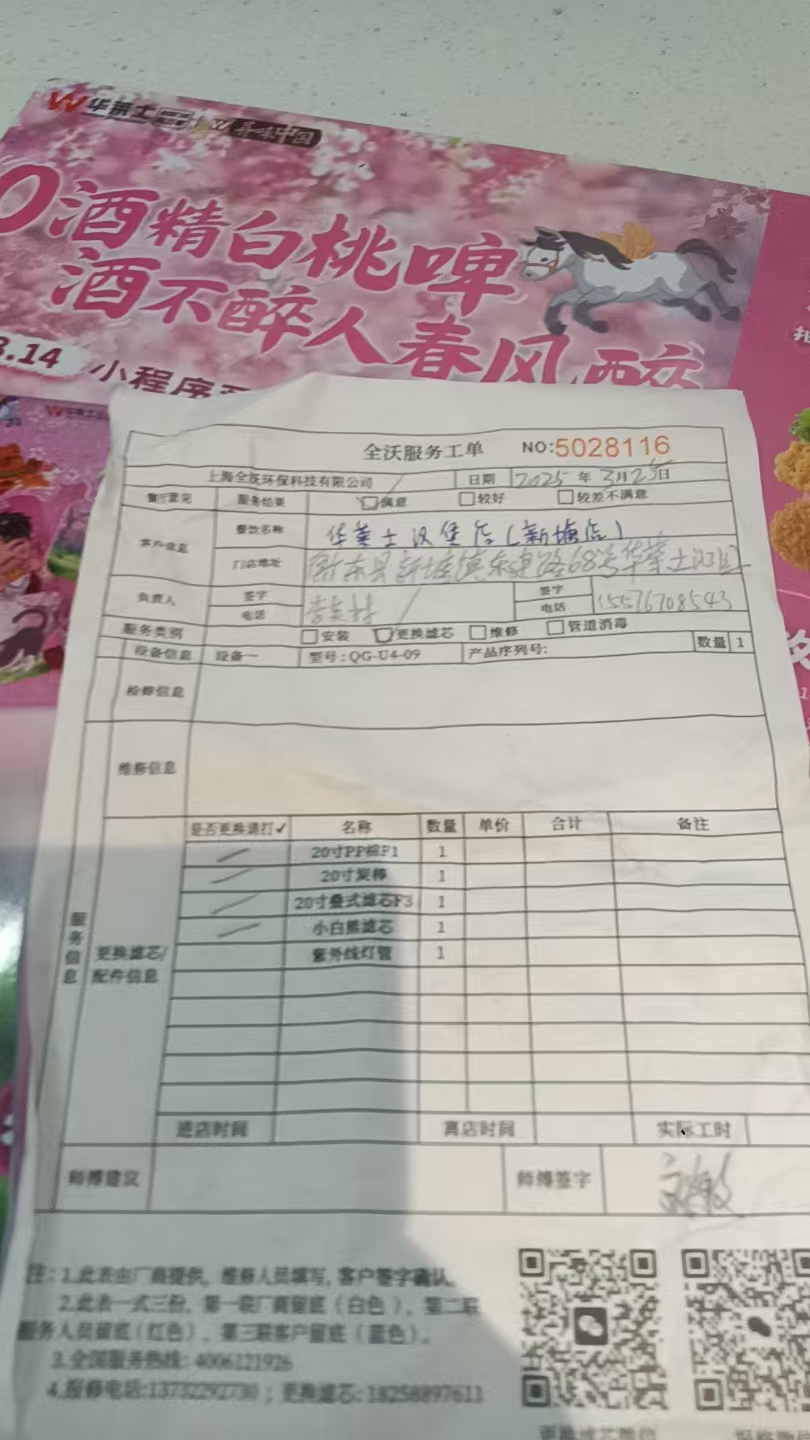 华莱士
0酒精白桃啤
酒不醉人春风醉
3.14 小程序
全沃服务工单 NO:5028116
上海全沃环保科技有限公司 日期 2025 年 3月25日
服务结果 满意 较好 较差不满意
客户信息 餐饮名称 华莱士汉堡店(新塘店)
门店地址 新塘镇东 路68号华莱士
负责人 签字 签字
电话 电话 15576708543
服务类别 安装 更换滤芯 维修 管道消毒
设备信息 设备一 型号:QG-U4-09 产品序列号: 数量 1
检修信息
维修信息
服务信息
更换滤芯/配件信息
是否更换请打✓ 名称 数量 单价 合计 备注
20寸PP棉F1 1
20寸炭棒 1
20寸叠式滤芯F3 1
小白熊滤芯 1
紫外线灯管 1
进店时间 离店时间 实际工时
师傅建议 师傅签字
注:1.此表由厂商提供、维修人员填写,客户签字确认。
2.此表一式三份、第一联厂商留底(白色)、第二联
服务人员留底(红色)、第三联客户留底(蓝色)。
3.全国服务热线: 4006121926
4.报修电话:13732292730 ; 更换滤芯: 18258897611
更换滤芯微信